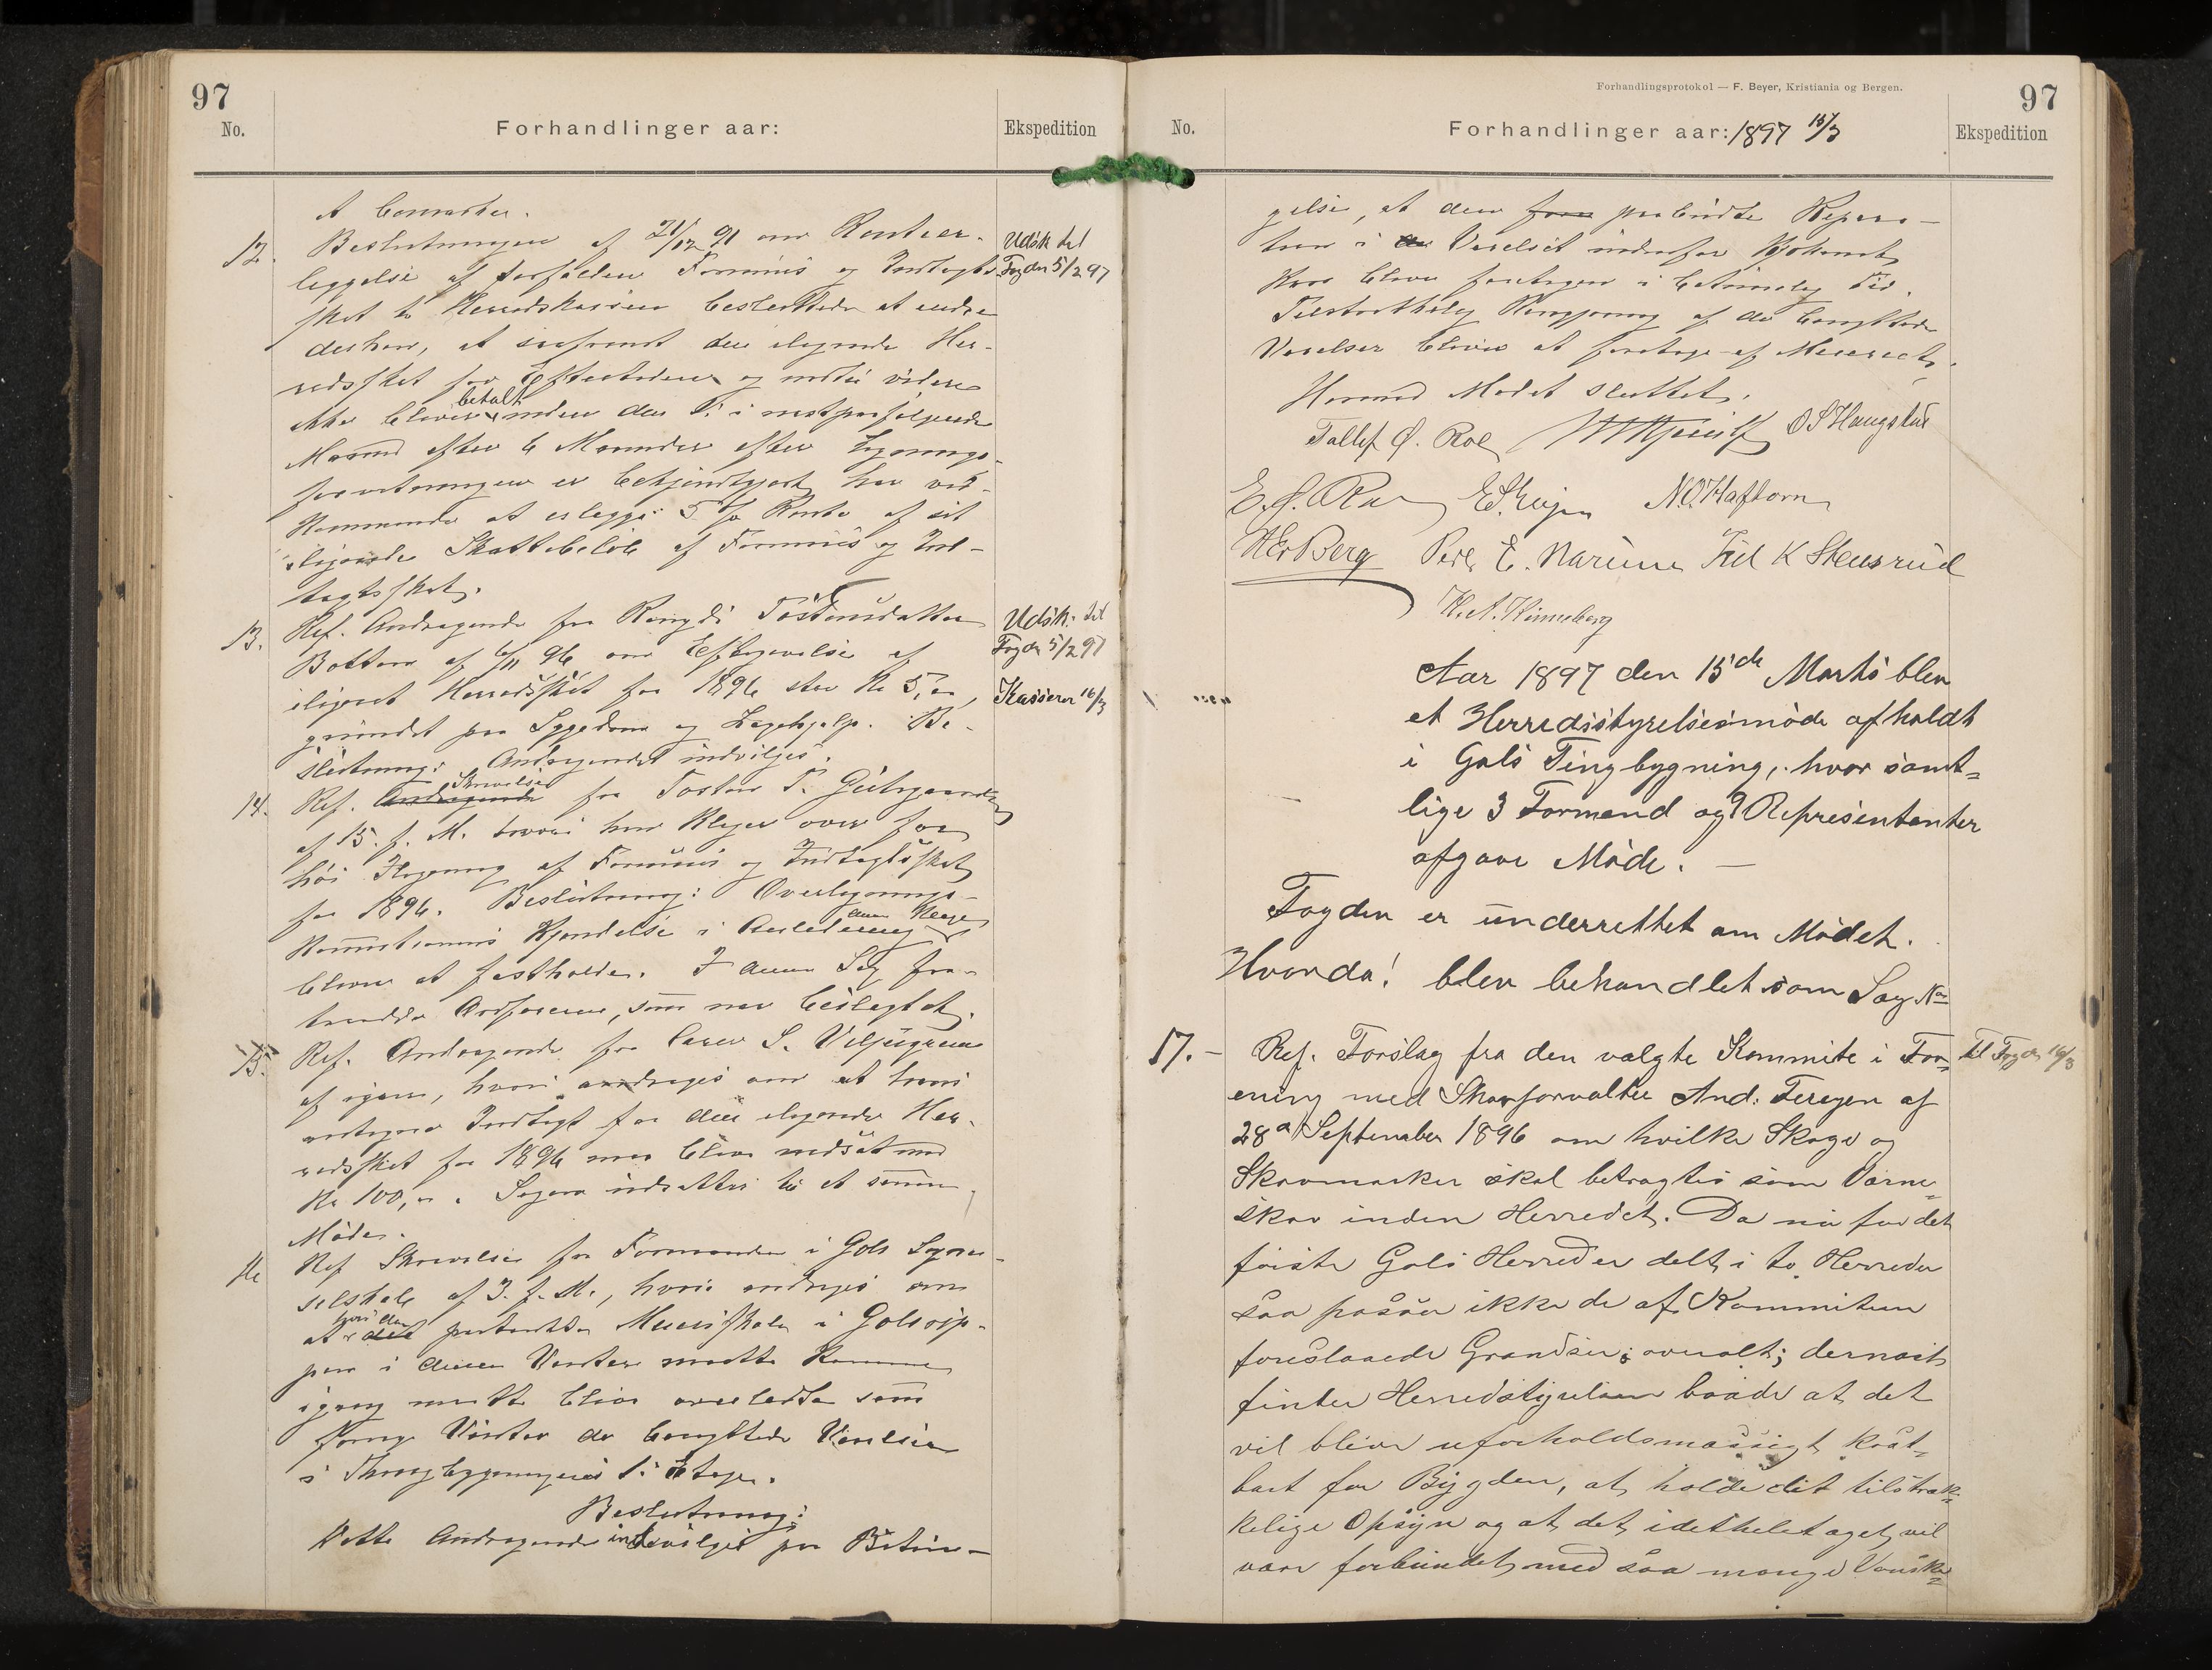 97
No.
Forhandlinger aar:
Ekspedition
at bemærke.
12. Beslutningen af 21/12 91 om Renteer-
læggelse af forfalden Formues og Indtægts-
skat til Herredskassen besluttedes at endre
derhen, at saafremt den ilignede Her-
redsskat for Efteraaret og indtil videre
ikke bliver betalt inden den 1. i næstpaafølgende
Maaned efter 6 Maaneder efter Lignings-
forretningen er bekjendtgjort, har ved-
kommende at erlægge 5 % Rente af sit
ilignede Skattebeløb af Formues og Ind-
tægtsskat.
Udsk. til
Fogden 5/2 97
13. Ref. Andragende fra Rangdi Tostensdatter
Botten af 6/11 96 om Eftergivelse af
ilignet Herredsskat for 1896 stor Kr 5,00,
grundet paa Sygdom og Lægehjælp. Be-
slutning: Andragendet indvilges.
Udsk. til
Fogden 5/2 97
Kasserer 16/3
14. Ref. Skrivelse fra Tosten T.
af 15. f. M. hvori han klager over for
høi Iligning af Formues og Indtægtsskat
for 1896. Beslutning: Overlignings-
kommissionens Kjendelse i Anledning denne Klage
bliver at fastholde. I denne Sag fra-
traadte Ordføreren, som var beslægtet.
15. Ref. Andragende fra Caren S. Viljugrein
af igaar, hvori andrages om at hans
antagne Indtægt for den ilignede Her-
redsskat for 1896 maa blive nedsat med
Kr 100,00. Sagen udsættes til et senere
Møde.
16 Ref Skrivelse fra Formanden i Gols Sogne-
selskab af 3. f. M., hvori andrages om
at hvis den paatænkte Meieriskole i Golsop-
pen i denne Vinter maatte komme
igang maatte blive overladt som
forrige Vinter de benyttede Værelser
i Thingbygningens 1. Etage.
Beslutning:
Dette Andragende indvilges paa Betin-
Forhandlingsprotokol — F. Beyer, Kristiania og Bergen.
97
No.
Forhandlinger aar: 1897 15/3
Ekspedition
gelse, at den paabudte Repara-
tion i Værelset indenfor Kjøkkenet
kan blive foretagen i betimelig Tid.
Tilstrækkelig Rengjøring af de benyttede
Værelser bliver at foretage af Meieriet.
Hermed Mødet sluttet.
Tollef O. Roe O S Haugstad
N.O. Haftorn
HEv Berg Peder E. Narum Fred K Stensrud
K.A. Himmeberg
Aar 1897 den 15de Marts blev
et Herredsstyrelsesmøde afholdt
i Gols Tingbygning, hvor samt-
lige 3 Formænd og 9 Repræsentanter
afgave Møde. —
Fogden er underrettet om Mødet.
Hvorda! blev behandlet som Sag No
17. — Ref. Forslag fra den valgte Kommite i For-
ening med Skovforvalter And. Teregen af
28de September 1896 om hvilke Skoge og
Skovmarker skal betragtes som Værne-
skov inden Herredet. Da nu for det
første Gols Herred er delt i to Herreder
saa passer ikke de af Kommiteen
foreslaaede Grændser overalt; dernæst
finder Herredstyrelsen baade at det
vil blive uforholdsmæssigt kost-
bart for Bygden, at holde det tilstræk-
kelige Opsyn og at det idethele taget vil
være forbundet med saa mange Vanske-
til Fogden 16/3